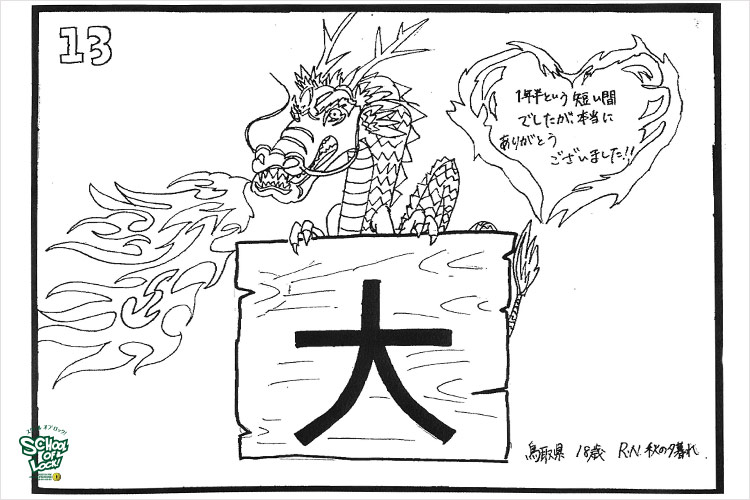 13
1年半という短い間
でしたが本当に
ありがとう
ございました!!
大
鳥取県 18歳 R.N.秋の夕暮れ
スクール オブ ロック!
SCHOOL
OF
LOCK!